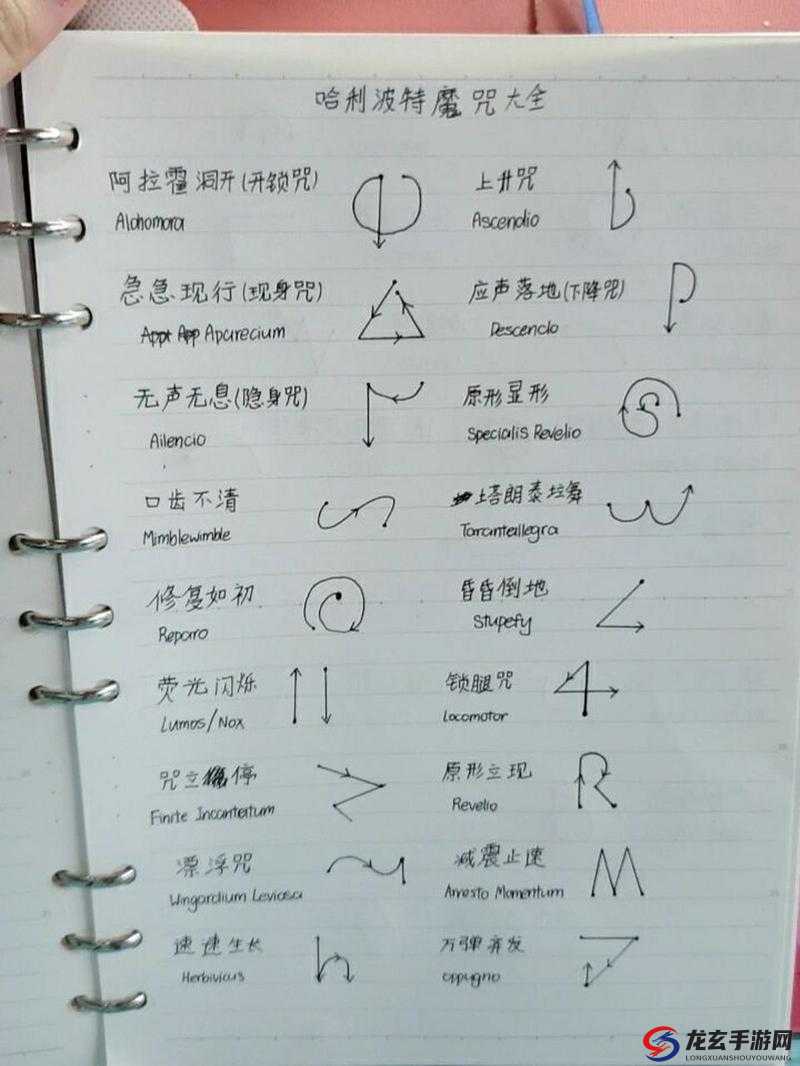 哈利波特魔咒大全
阿拉霍洞开(开锁咒)
Alohomora
上升咒
Ascendio
急急现行(现身咒)
Appt App Aparecium
应声落地(下降咒)
Descendo
无声无息(隐身咒)
Ailencio
原形显形
Specialis Revelio
口齿不清
Mimblewimble
塔朗泰拉舞
Tarantallegra
修复如初
Reparo
昏昏倒地
Stupefy
荧光闪烁
Lumos/Nox
锁腿咒
Locomotor
咒立停
Finite Incantatum
原形立现
Revelio
漂浮咒
Wingardium Leviosa
减震止速
Arresto Momentum
速速生长
Herbivicus
万弹齐发
oppugno
龙玄手游网
LONGXUANSHOUYOUWANG